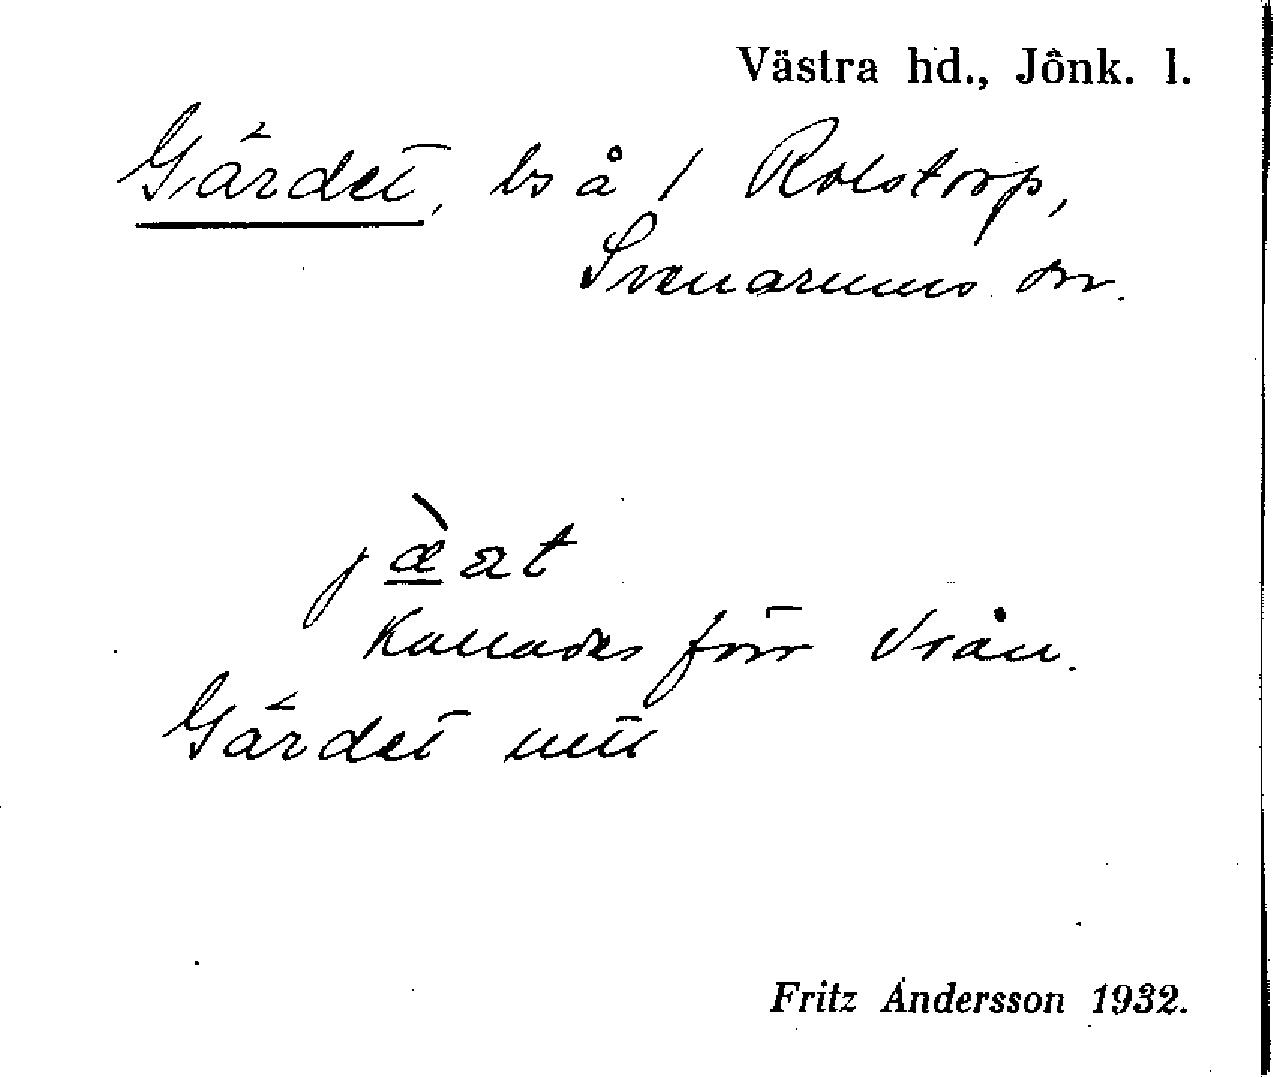 Västra hd., Jönk. l.
Gärdet, bs å 1 Rolstorp,
Svenarums sn.
Kallades förr Vrån.
Gärdet
Fritz Andersson 1932.